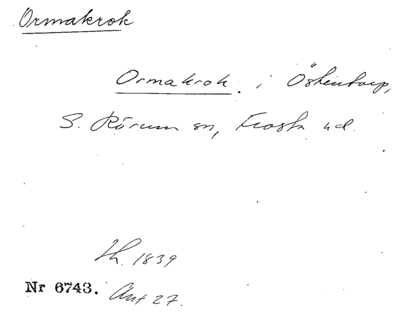 Ormakrok
Ormakrok. i Östentorp,
S. Rörum sn, Frosta hd.
Lh. 1839
Nr 6743. Ant 27.